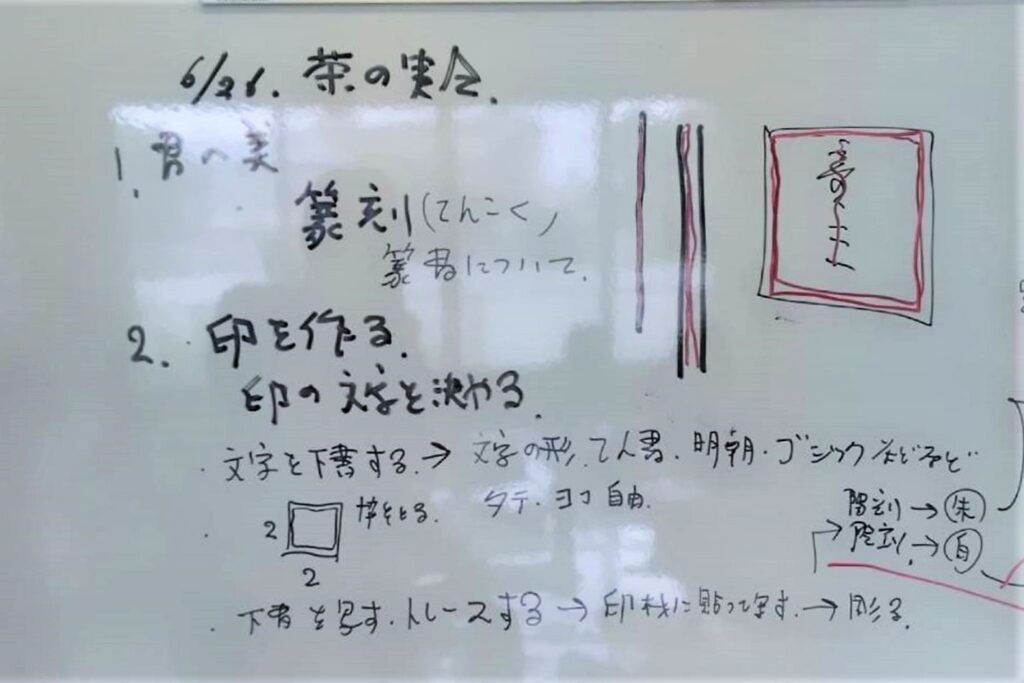 6/21. 茶の実会.
1. 書の美
篆刻(てんこく)
篆書について.
2. 印を作る.
印の文字を決める.
・文字を下書する. → 文字の形. てん書. 明朝・ゴシックなどなど
タテ・ヨコ 自由.
・2 枠をとる.
2
陽刻 → 朱
陰刻. → 白
・下書を写す. トレースする → 印材に貼って写す. → 彫る.